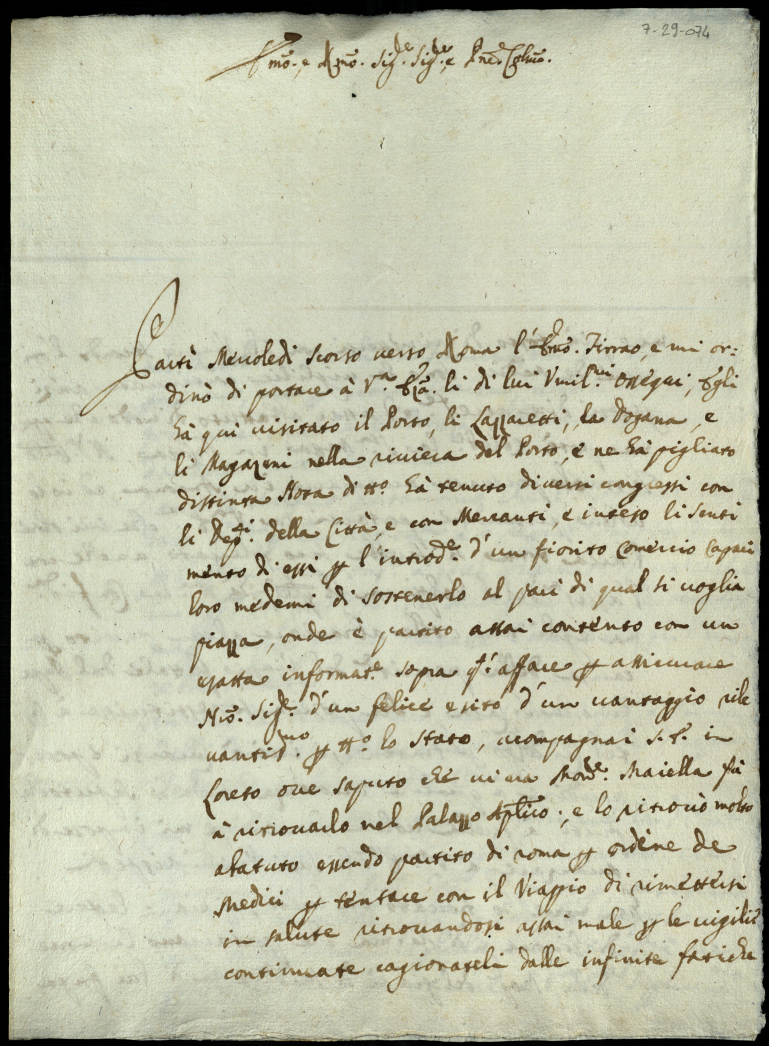 7-29-074
Emo. e Rmo. Sig.re Sig.re, e Pne. Colmo.
Partì Mercoledi scorso verso Roma l'Emo. Firrao, e mi or:
dinò di portare à V.ra Eza. li di lui Vmil.mi ossequi, Egli
hà qui visitato il Porto, li Lazzaretti, la Dogana, e
li Magazeni nella riviera del Porto, e ne hà pigliato
distinta Nota di tto. hà tenuto diversi congressi con
li Dep.ti della Città, e con Mercanti, e inteso li senti
mento di essi p l'introd.e d'un fiorito Comercio capaci
loro medemi di sostenerlo al pari di qual si voglia
piazza, onde è partito assai contento con un
esatta informat.e sopra q.to affare p assicurare
Nro. Sig.re d'un felice esito d'un vantaggio rile
vantis.mo p tto. lo stato, acompagnai S. E. in
Loreto ove saputo che vi era Mons.re Maiella fù
à ritrovarlo nel Palazzo Aplico., e lo ritrovò molto
abatuto essendo partito di roma p ordine de
Medici p tentare con il Viaggio di rimettersi
in salute ritrovandosi assai male p le vigilie
continuate cagionateli dalle infinite fatiche